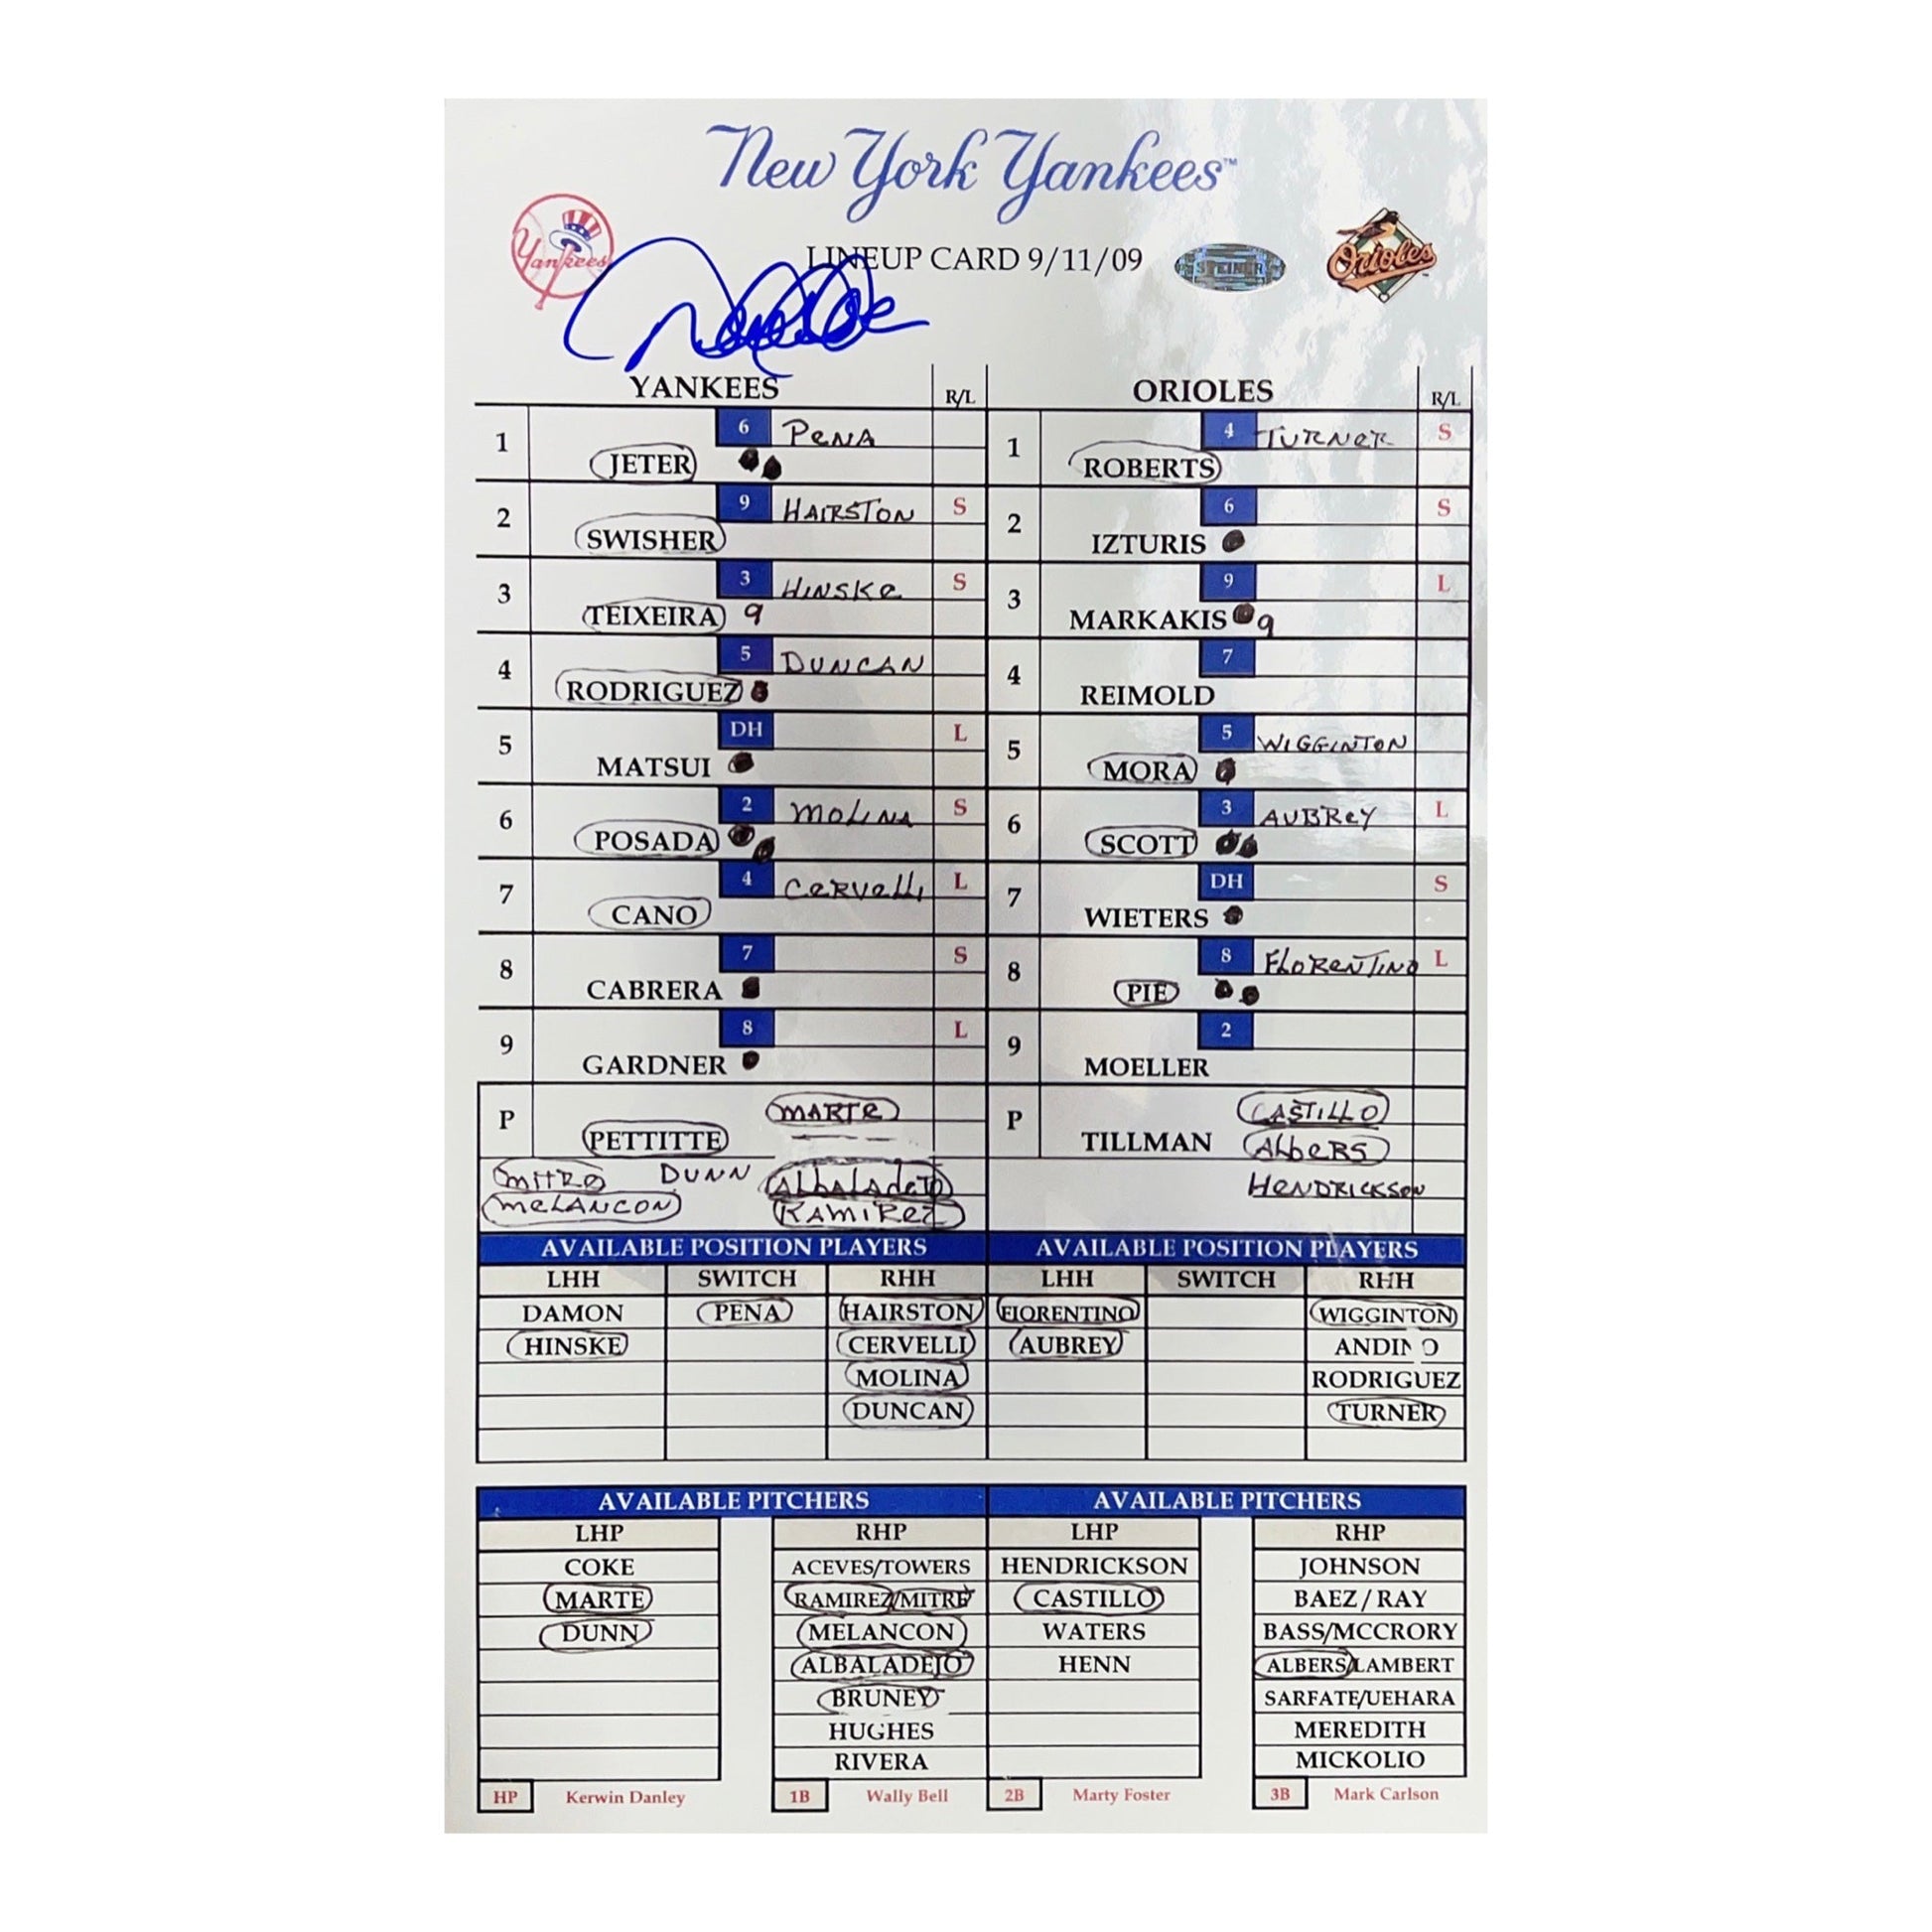 New York Yankees™
Yankees
LINEUP CARD 9/11/09
STEINER
Orioles
YANKEES R/L ORIOLES R/L
1 JETER 6 PENA
1 ROBERTS 4 TURNER S
2 SWISHER 9 HAIRSTON S
2 IZTURIS 6 S
3 TEIXEIRA 9 3 HINSKE S
3 MARKAKIS 9 9 L
4 RODRIGUEZ 5 DUNCAN
4 REIMOLD 7
5 MATSUI DH L
5 MORA 5 WIGGINTON
6 POSADA 2 MOLINA S
6 SCOTT 3 AUBREY L
7 CANO 4 CERVELLI L
7 WIETERS DH S
8 CABRERA 7 S
8 PIE 8 FLORENTINO L
9 GARDNER 8 L
9 MOELLER 2
P PETTITTE MARTE
P TILLMAN CASTILLO
ALBERS
MITRE DUNN ALBALADEJO
HENDRICKSON
MELANCON RAMIREZ
AVAILABLE POSITION PLAYERS AVAILABLE POSITION PLAYERS
LHH SWITCH RHH LHH SWITCH RHH
DAMON PENA HAIRSTON FIORENTINO WIGGINTON
HINSKE CERVELLI AUBREY ANDINO
MOLINA RODRIGUEZ
DUNCAN TURNER
AVAILABLE PITCHERS AVAILABLE PITCHERS
LHP RHP LHP RHP
COKE ACEVES/TOWERS HENDRICKSON JOHNSON
MARTE RAMIREZ/MITRE CASTILLO BAEZ / RAY
DUNN MELANCON WATERS BASS/MCCRORY
ALBALADEJO HENN ALBERS/LAMBERT
BRUNEY SARFATE/UEHARA
HUGHES MEREDITH
RIVERA MICKOLIO
HP Kerwin Danley 1B Wally Bell 2B Marty Foster 3B Mark Carlson